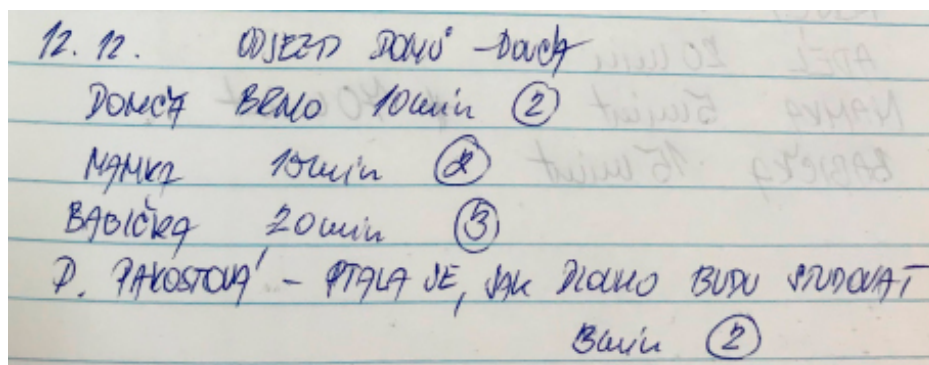 12. 12. ODJEZD DOMŮ - Domča
DOMČA BRNO 10min (2)
MAMKA 15min (2)
BABIČKA 20min (3)
P. PAKOSTOVÁ - PTALA SE, JAK DLOUHO BUDU STUDOVAT
3min (2)